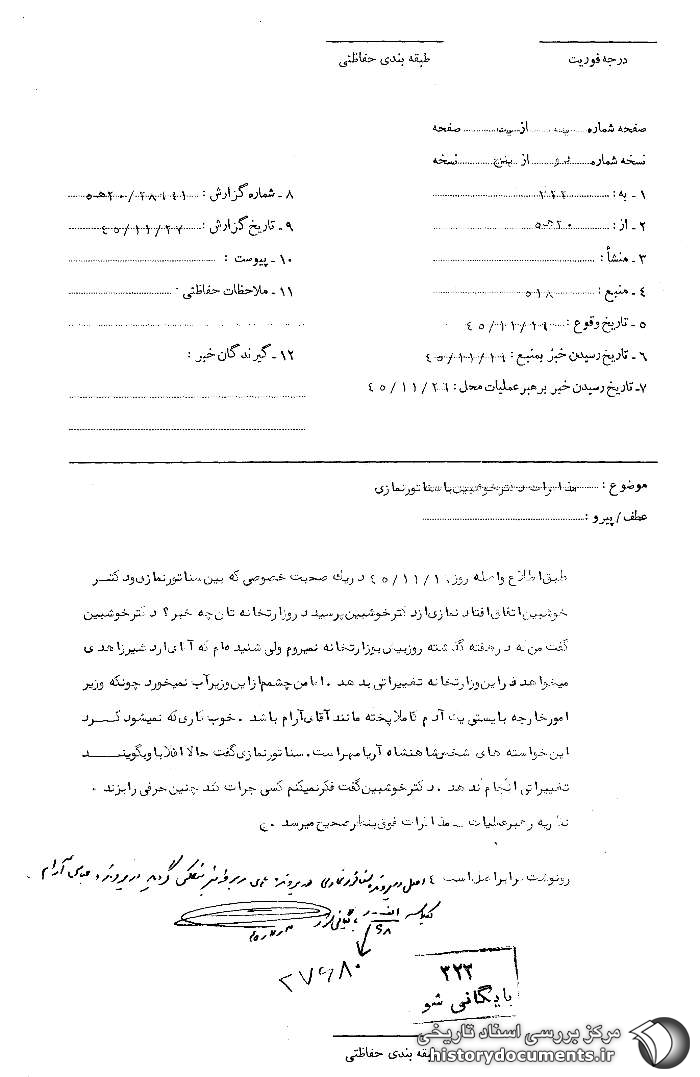 درجه فوریت
طبقه بندی حفاظتی
صفحه شماره از صفحه
نسخه شماره دو از پنج نسخه
۱ ـ به : ۳۲۲
۲ ـ از : ۲۰ هـ ۵
۳ ـ منشأ :
۴ ـ منبع : ۵۱۸
۵ ـ تاریخ وقوع :
۶ ـ تاریخ رسیدن خبر بمنبع :
۷ـ تاریخ رسیدن خبر برهبر عملیات محل : ۴۵/۱۱/۲۶
۸ ـ شماره گزارش :
۹ ـ تاریخ گزارش : ۴۵/۱۱/۲۷
۱۰ ـ پیوست :
۱۱ ـ ملاحظات حفاظتی :
۱۲ ـ گیرندگان خبر :
موضوع : مذاکرات دکتر خوشبین با سناتور نمازی
عطف / پیرو :
طبق اطلاع واصله روز در یك صحبت خصوصی که بین سناتور نمازی و دکتر
خوشبین اتفاق افتاد نمازی از دکتر خوشبین پرسید در وزارتخانه تان چه خبر ؟ دکتر خوشبین
گفت من که در هفته گذشته روزی بوزارتخانه نمیروم ولی شنیده ام که آقای اردشیر زاهدی
میخواهد در این وزارتخانه تغییراتی بدهد . اما من چشمم از این وزیر آب نمیخورد چونکه وزیر
امور خارجه بایستی یك آدم کاملا پخته مانند آقای آرام باشد . خوب کاری که نمیشود کرد
این خواسته های شخص شاهنشاه آریامهر است . سناتور نمازی گفت حالا اقلا باو بگویند
تغییراتی انجام ندهد . دکتر خوشبین گفت فکر نمیکنم کسی جرات کند چنین حرفی را بزند .
نظریه رهبر عملیات ـ مذاکرات فوق بنظر صحیح میرسد . ج
رونوشت برابر اصل است
اصل در پرونده سناتور نمازی گردید در پرونده عباس آرام
۳۲۲
بایگانی شو
طبقه بندی حفاظتی
مرکز بررسی اسناد تاریخی
historydocuments.ir